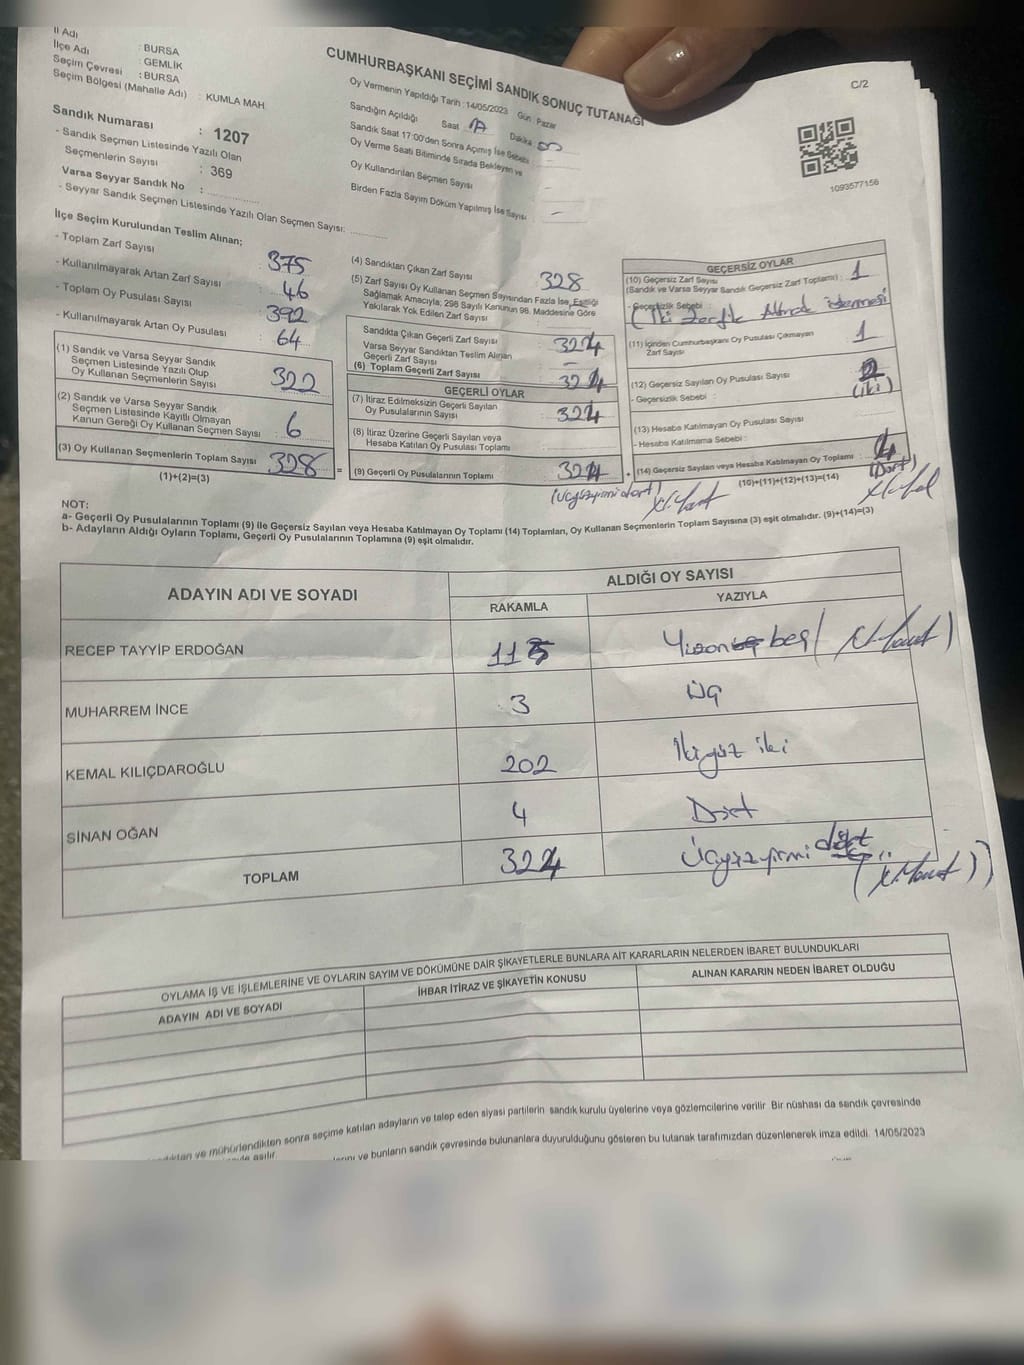 İl Adı : BURSA
İlçe Adı : GEMLİK
Seçim Çevresi : BURSA
Seçim Bölgesi (Mahalle Adı) : KUMLA MAH
CUMHURBAŞKANI SEÇİMİ SANDIK SONUÇ TUTANAĞI
C/2
Oy Vermenin Yapıldığı Tarih : 14/05/2023 Gün Pazar
Sandığın Açıldığı Saat Dakika
Sandık Saat 17:00'den Sonra Açımış İse Sebebi :
Oy Verme Saati Bitiminde Sırada Bekleyen ve
Oy Kullandırılan Seçmen Sayısı
Birden Fazla Sayım Döküm Yapılmış İse Sayısı
1093577156
Sandık Numarası : 1207
- Sandık Seçmen Listesinde Yazılı Olan
Seçmenlerin Sayısı : 369
Varsa Seyyar Sandık No :
- Seyyar Sandık Seçmen Listesinde Yazılı Olan Seçmen Sayısı:
İlçe Seçim Kurulundan Teslim Alınan;
- Toplam Zarf Sayısı : 375
- Kullanılmayarak Artan Zarf Sayısı : 46
- Toplam Oy Pusulası Sayısı : 392
- Kullanılmayarak Artan Oy Pusulası : 64
(1) Sandık ve Varsa Seyyar Sandık
Seçmen Listesinde Yazılı Olup
Oy Kullanan Seçmenlerin Sayısı : 322
(2) Sandık ve Varsa Seyyar Sandık
Seçmen Listesinde Kayıtlı Olmayan
Kanun Gereği Oy Kullanan Seçmen Sayısı : 6
(3) Oy Kullanan Seçmenlerin Toplam Sayısı : 328
(1)+(2)=(3)
=
(4) Sandıktan Çıkan Zarf Sayısı : 328
(5) Zarf Sayısı Oy Kullanan Seçmen Sayısından Fazla İse, Eşitliği
Sağlamak Amacıyla; 298 Sayılı Kanunun 98. Maddesine Göre
Yakılarak Yok Edilen Zarf Sayısı :
Sandıkta Çıkan Geçerli Zarf Sayısı : 324
Varsa Seyyar Sandıktan Teslim Alınan
Geçerli Zarf Sayısı :
(6) Toplam Geçerli Zarf Sayısı : 324
GEÇERLİ OYLAR
(7) İtiraz Edilmeksizin Geçerli Sayılan
Oy Pusulalarının Sayısı : 324
(8) İtiraz Üzerine Geçerli Sayılan veya
Hesaba Katılan Oy Pusulası Toplamı :
(9) Geçerli Oy Pusulalarının Toplamı : 324
(üçyüzyirmidört)
+
GEÇERSİZ OYLAR
(10) Geçersiz Zarf Sayısı
(Sandık ve Varsa Seyyar Sandık Geçersiz Zarf Toplamı) : 1
- Geçersizlik Sebebi :
(11) İçinden Cumhurbaşkanı Oy Pusulası Çıkmayan
Zarf Sayısı : 1
(12) Geçersiz Sayılan Oy Pusulası Sayısı : 2
- Geçersizlik Sebebi : (iki)
(13) Hesaba Katılmayan Oy Pusulası Sayısı :
- Hesaba Katılmama Sebebi :
(14) Geçersiz Sayılan veya Hesaba Katılmayan Oy Toplamı : 4
(Dört)
(10)+(11)+(12)+(13)=(14)
NOT:
a- Geçerli Oy Pusulalarının Toplamı (9) ile Geçersiz Sayılan veya Hesaba Katılmayan Oy Toplamı (14) Toplamları, Oy Kullanan Seçmenlerin Toplam Sayısına (3) eşit olmalıdır. (9)+(14)=(3)
b- Adayların Aldığı Oyların Toplamı, Geçerli Oy Pusulalarının Toplamına (9) eşit olmalıdır.
ADAYIN ADI VE SOYADI
ALDIĞI OY SAYISI
RAKAMLA
YAZIYLA
RECEP TAYYİP ERDOĞAN 115 Yüzon beş
MUHARREM İNCE 3 üç
KEMAL KILIÇDAROĞLU 202 İkiyüz iki
SİNAN OĞAN 4 Dört
TOPLAM 324 Üçyüzyirmi dört
OYLAMA İŞ VE İŞLEMLERİNE VE OYLARIN SAYIM VE DÖKÜMÜNE DAİR ŞİKAYETLERLE BUNLARA AİT KARARLARIN NELERDEN İBARET BULUNDUKLARI
ADAYIN ADI VE SOYADI
İHBAR İTİRAZ VE ŞİKAYETİN KONUSU
ALINAN KARARIN NEDEN İBARET OLDUĞU
ve mühürlendikten sonra seçime katılan adayların ve talep eden siyasi partilerin sandık kurulu üyelerine veya gözlemcilerine verilir Bir nüshası da sandık çevresinde
asılır.
ve bunların sandık çevresinde bulunanlara duyurulduğunu gösteren bu tutanak tarafımızdan düzenlenerek imza edildi. 14/05/2023